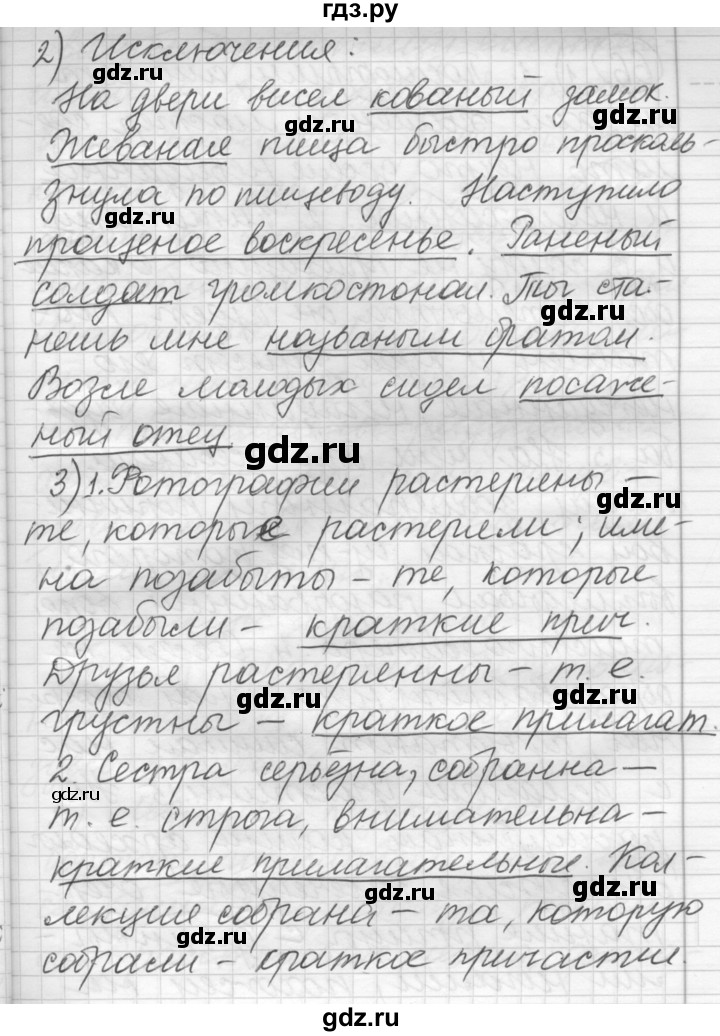 гдз.ру
2) Исключения:
gdz.ru
На двери висел кованый замок.
gdz.ru
gdz.ru
Жеваная пища быстро проскаль-
знула по пищеводу. Наступило
gdz.ru
прощеное воскресенье. Раненый
солдат громко стонал. Ты ста-
gdz.ru
нешь мне названым братом.
Возле молодых сидел посаже-
ный отец
gdz.ru
3) 1. Фотографии растеряны –
gdz.ru
те, которые растеряли; име-
на позабыты – те, которые
позабыли – краткие прич.
Друзья растерянны – т. е.
gdz.ru
gdz.ru
грустны – краткое прилагат.
2. Сестра серьёзна, собранна –
gdz.ru
т. е. строга, внимательна –
gdz.ru
краткие прилагательные. Кол-
gdz.ru
gdz.ru
лекция собрана – та, которую
gdz.ru
собрали – краткое причастие.
гдз.ру